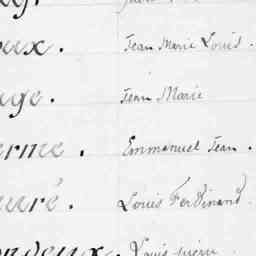 eux. Jean Marie Louis.
age. Jean Marie
ernee. Emmanuel Jean.
euré. Louis Ferdinand
ondeux. Louis